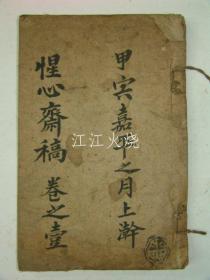 甲寅嘉平之月上澣
惺心齋稿 卷之壹
江江火烧